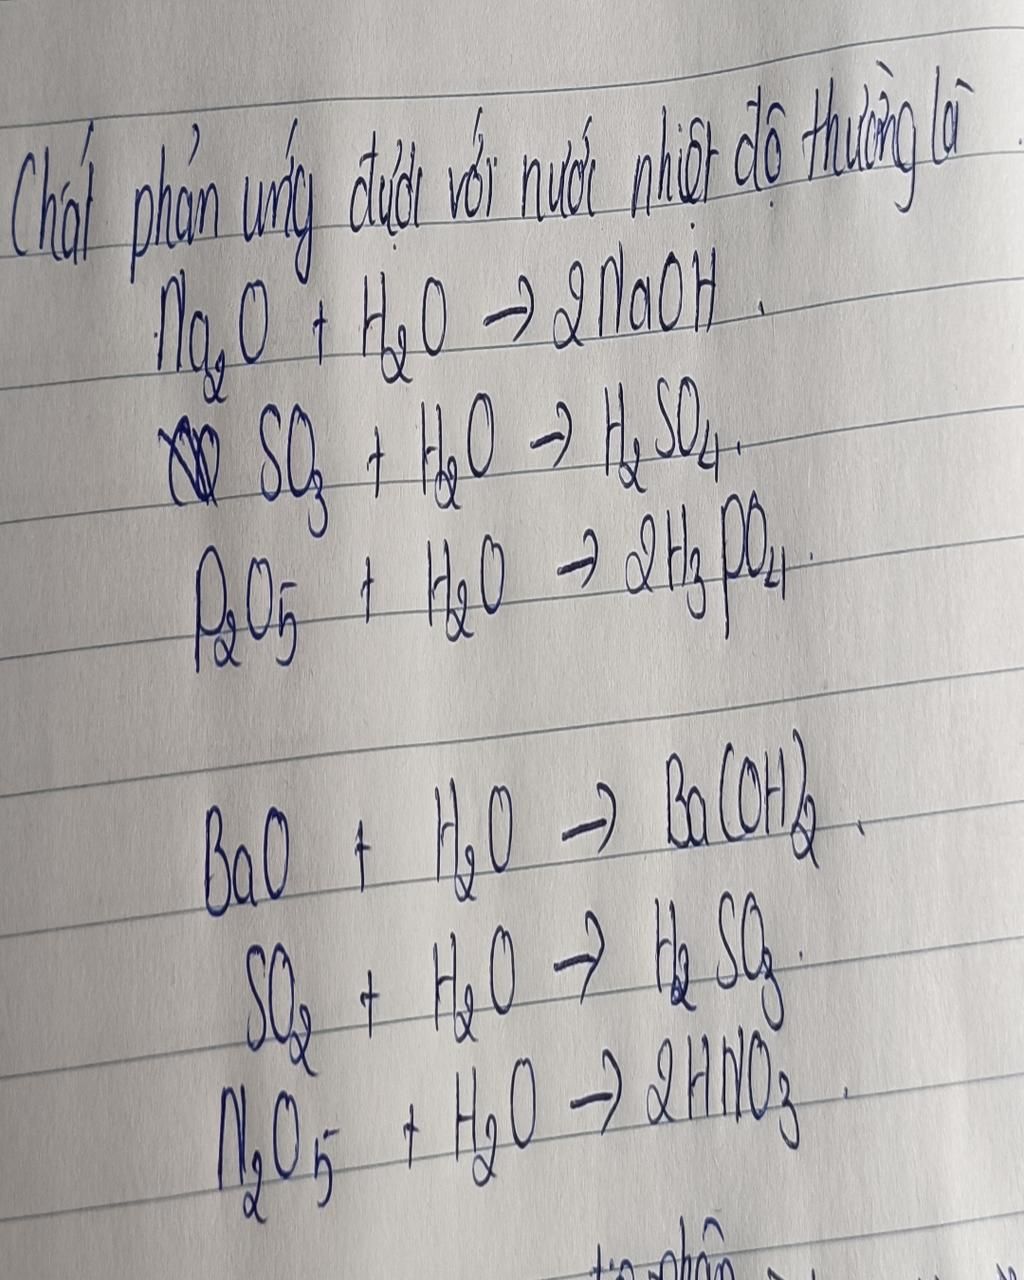 Chất phản ứng được với nước nhiệt độ thường là
Na₂O + H₂O → 2NaOH.
SO₃ + H₂O → H₂SO₄.
P₂O₅ + H₂O → 2H₃PO₄.
BaO + H₂O → Ba(OH)₂.
SO₂ + H₂O → H₂SO₃.
N₂O₅ + H₂O → 2HNO₃.
phân